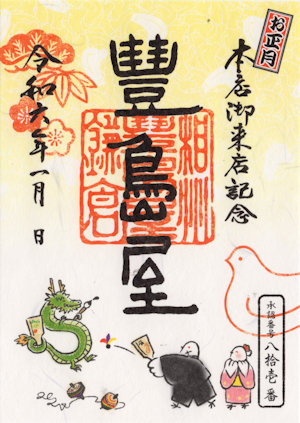 お正月
本店御来店記念
豊島屋
相州
鎌倉
令和六年一月 日
承認番号 八拾壱番